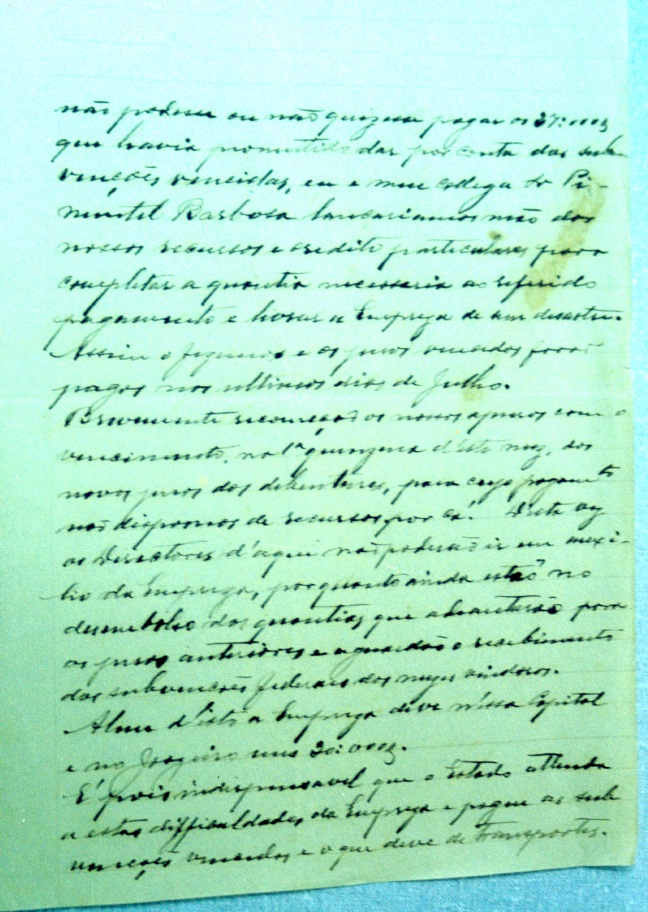 não podesse ou não quizesse pagar os 27:000$
que havia promettido dar por conta das sub-
venções vencidas, eu e meu collega Dr Pi-
mentel Barbosa lançariamos mão dos
nossos recursos e credito particulares para
completar a quantia necessaria ao referido
pagamento e livrar a Empreza de um desastre.
Assim o fizemos e os juros vencidos forão
pagos nos ultimos dias de Julho.
Brevemente recomeção os nossos apuros com o
vencimento, na 1ª quinzena d'este mez, dos
novos juros dos debentures, para cujo pagamto
não dispomos de recursos por cá. D'esta vez
os Directores d'aqui não poderão ir em auxi-
lio da Empreza, porquanto ainda estão no
desembolso das quantias que adiantarão para
os juros anteriores e aguardão o recebimento
das subvenções federaes dos mezes vindouros.
Alem d'isto a Empreza deve n'essa Capital
e no Joazeiro uns 20:000$.
E' pois indispensavel que o Estado attenda
a estas difficuldades da Empreza e pague as sub
venções vencidas e o que deve de transportes.